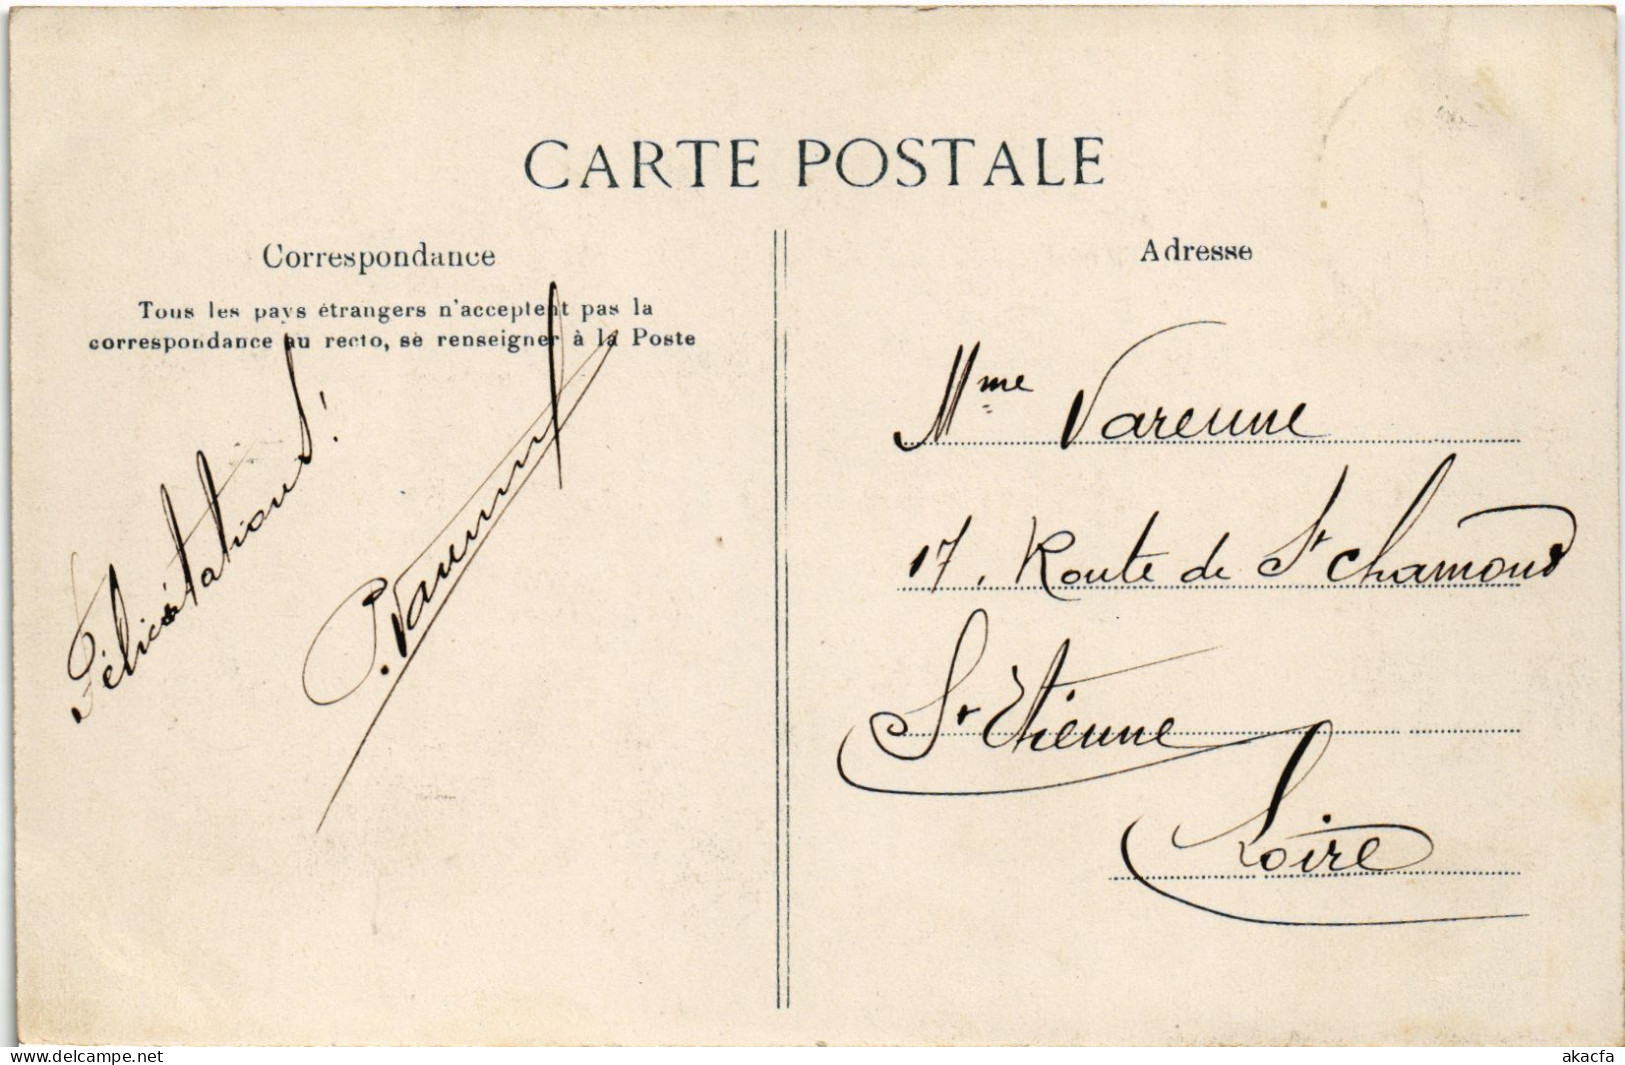 CARTE POSTALE
Correspondance
Tous les pays étrangers n'acceptent pas la
correspondance au recto, se renseigner à la Poste
Félicitations!
Adresse
Mme Varenne
17, Route de St Chamond
St Etienne
Loire
delcampe.net
akacfa